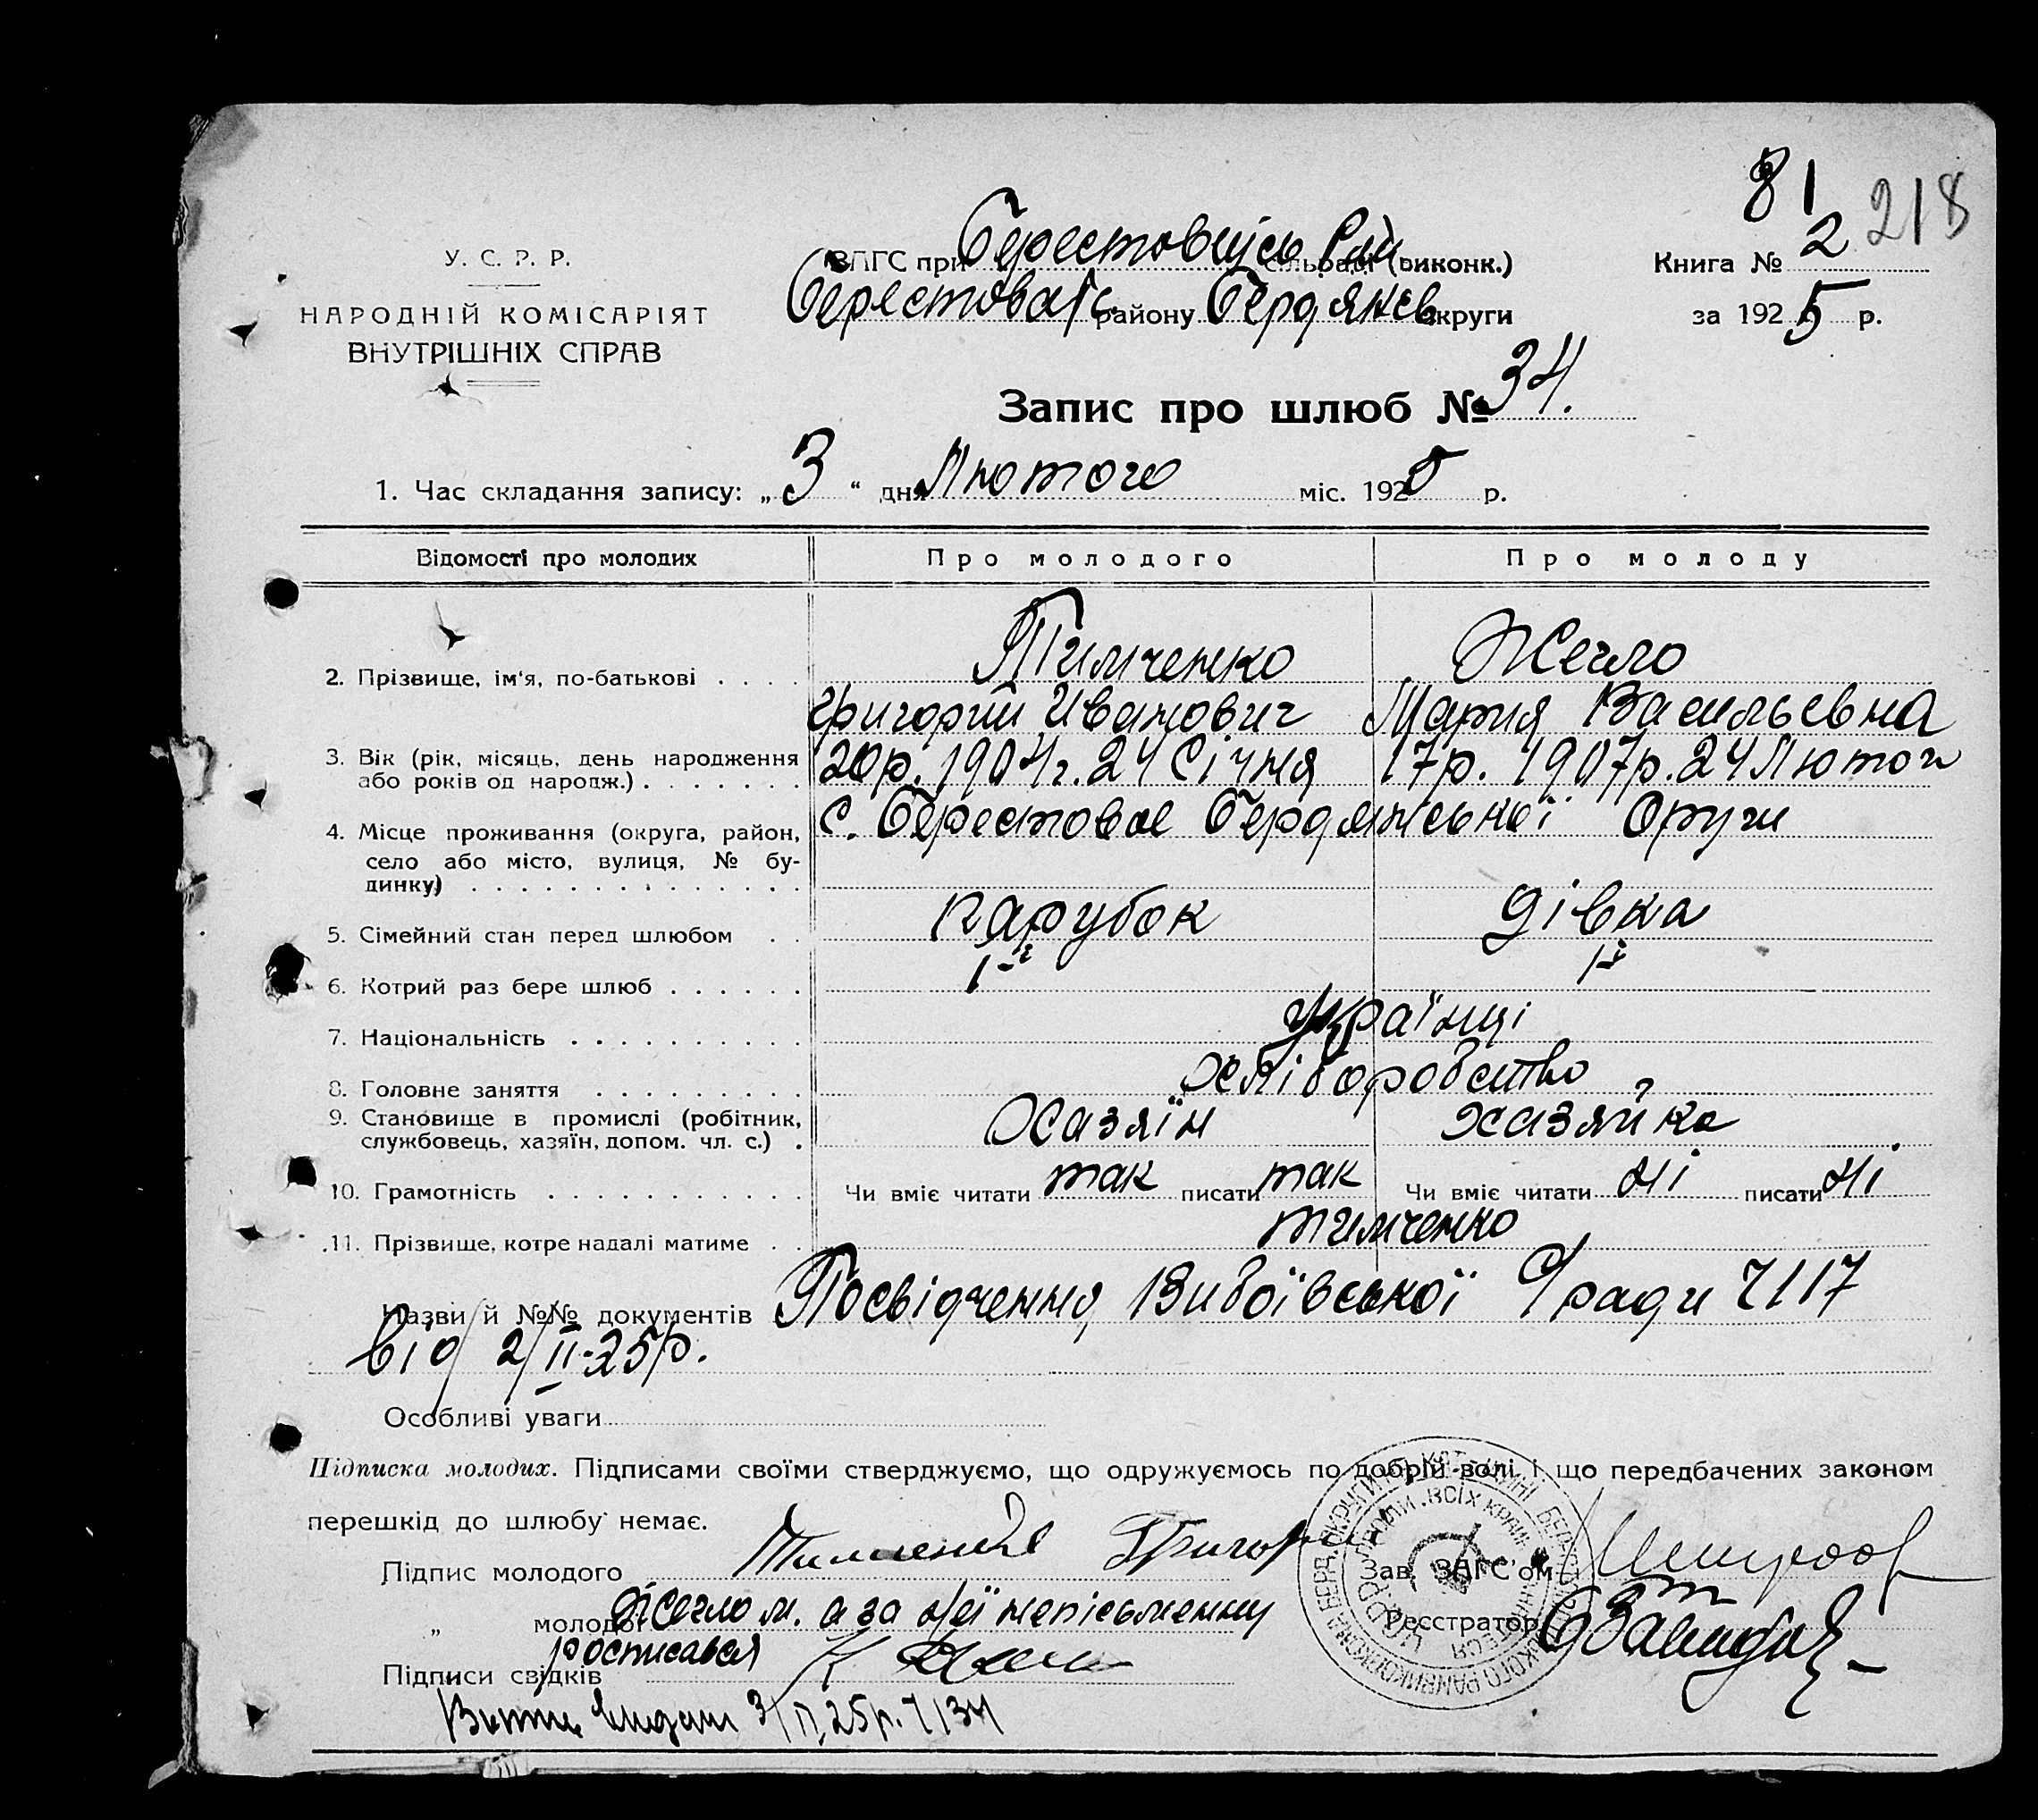 81
218
У. С. Р. Р.
НАРОДНІЙ КОМІСАРІЯТ
ВНУТРІШНІХ СПРАВ
ЗАГС при Берестовецьк Рай. сільраді (виконк.)
Берестовець. району Бердянськ округи
Книга № 2
за 1925 р.
Запис про шлюб № 34.
1. Час складання запису: „ 3 “ дня Лютого міс. 1925 р.
Відомості про молодих Про молодого Про молоду
2. Прізвище, ім'я, по-батькові . . . . Тимченко Жегло
Григорий Иванович Мария Васильевна
3. Вік (рік, місяць, день народження або років од народж.) . . . . . . . 20р. 1904г. 24 Січня 17р. 1907р. 24 Лютого
4. Місце проживання (округа, район, село або місто, вулиця, № будинку) . . . . . . . . . . . . . . с. Берестовое Бердянської Округи
5. Сімейний стан перед шлюбом . . парубок дівка
6. Котрий раз бере шлюб . . . . . . 1-й 1-й
7. Національність . . . . . . . . . . Українці
8. Головне заняття . . . . . . . . . хліборобство
9. Становище в промислі (робітник, службовець, хазяїн, допом. чл. с.) . Хазяїн хазяйка
10. Грамотність . . . . . . . . . . . Чи вміє читати так писати так Чи вміє читати Ні писати Ні
11. Прізвище, котре надалі матиме . . Тимченко
Назви й №№ документів Посвідчення, С/ради 117
від 2/II-25р.
Особливі уваги
Підписка молодих. Підписами своїми стверджуємо, що одружуємось по добрій волі і що передбачених законом
перешкід до шлюбу немає.
Підпис молодого Тимченко Григорий Зав. ЗАГС'ом
„ молодої Жегло М. а за неї неписьменну Реєстратор
росписався
Підписи свідків
видан 3/II 25р. 134